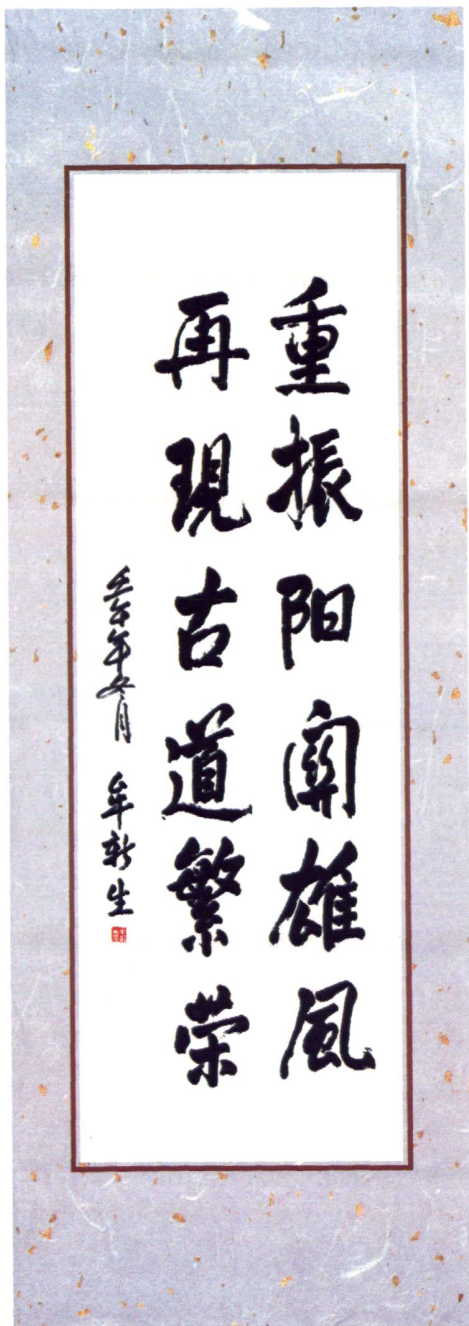 重振阳關雄風
再現古道繁荣
壬午年冬月 牟新生